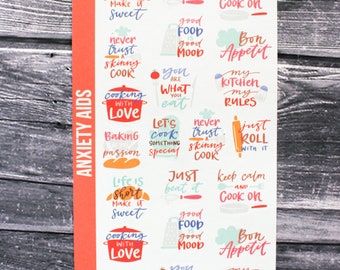 ANXIETY AIDS
make it
sweet
good
FOOD
good
MOOD
COOK ON
never
trust
a
skinny
COOK
you
ARE
WHAT
you
eat
Bon
Appetit
cooking
WITH
LOVE
my
KITCHEN
my
RULES
Baking
passion
LET'S
cook
SOMETHING
special
never
TRUST
a
SKINNY
COOK
just
ROLL
WITH IT
LIFE IS
short
Make it
sweet
JUST
beat it
keep calm
AND
COOK ON
cooking
WITH
LOVE
good
FOOD
good
MOOD
Bon
Appetit
you
my